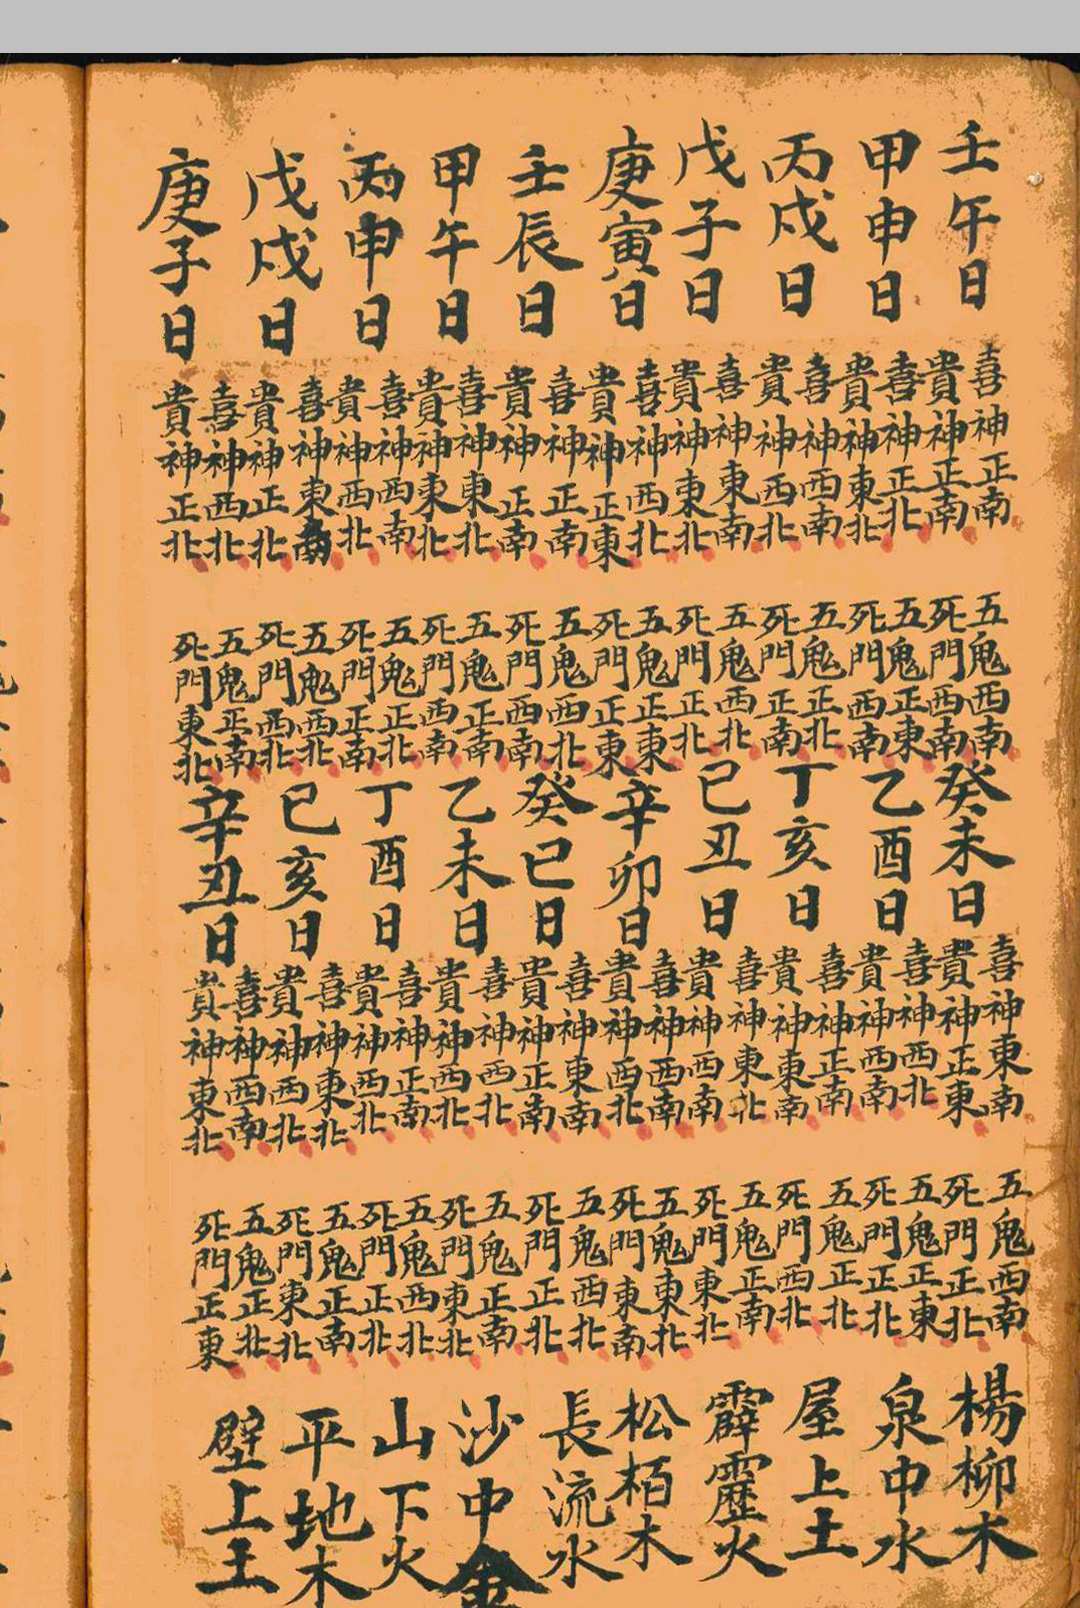 壬午日
喜神正南
貴神正南
五鬼西南
死門西南
癸未日
喜神東南
貴神正東
五鬼西南
死門正北
楊柳木
甲申日
喜神正北
貴神東北
五鬼正東
死門西南
乙酉日
喜神西北
貴神西南
五鬼正東
死門正北
泉中水
丙戌日
喜神西南
貴神西北
五鬼正北
死門正南
丁亥日
喜神正南
貴神東南
五鬼正北
死門西北
屋上土
戊子日
喜神東南
貴神東北
五鬼西北
死門正北
已丑日
喜神東北
貴神西南
五鬼正南
死門東北
霹靂火
庚寅日
喜神西北
貴神正東
五鬼正東
死門正東
辛卯日
喜神西南
貴神西北
五鬼東北
死門東南
松栢木
壬辰日
喜神正南
貴神正南
五鬼西北
死門西南
癸巳日
喜神東南
貴神正南
五鬼西北
死門正北
長流水
甲午日
喜神東北
貴神東北
五鬼正南
死門西南
乙未日
喜神西北
貴神西北
五鬼正南
死門東北
沙中金
丙申日
喜神西南
貴神西北
五鬼正北
死門正南
丁酉日
喜神正南
貴神西北
五鬼西北
死門正北
山下火
戊戌日
喜神東南
貴神正北
五鬼西北
死門西北
已亥日
喜神東北
貴神西北
五鬼正南
死門東北
平地木
庚子日
喜神西北
貴神正北
五鬼正南
死門東北
辛丑日
喜神西南
貴神東北
五鬼正北
死門正東
壁上王